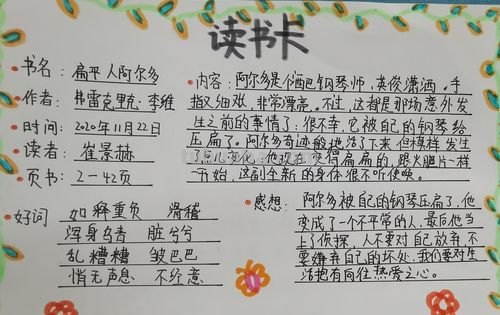 读书卡
• 书名：扁平人阿尔多
• 作者：弗雷克里克·李维
• 时间：2020年11月22日
• 读者：崔景赫
• 页书：2－42页
• 好词 如释重负 滑稽
浑身乌青 脏兮兮
乱糟糟 皱巴巴
悄无声息 不经意
• 内容：阿尔多是个酒吧钢琴师，英俊潇洒。手
指又细戏，非常漂亮。不过，这都是那场意外发
生之前的事情了：很不幸，它被自己的钢琴给
压扁了。阿尔多奇迹般地活了下来但模样发生
了点儿变化：他现在变得扁扁的，跟火腿片一样
一开始，这副全新的身体很不听使唤。
• 感想：阿尔多被自己的钢琴压扁了，他
变成了一个不平常的人，最后他当
上了侦探，人不要对自己放弃，不
要嫌弃自己的坏处，我们要对生
活抱有向往热爱之心。